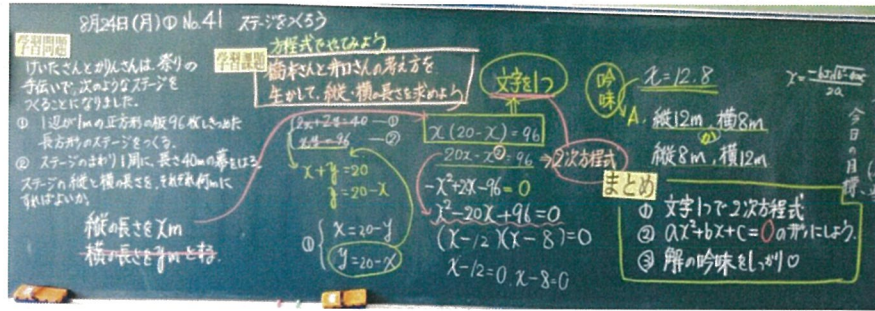 8月24日(月)① No.41 ステージをつくろう
学習問題
けいたさんとかりんさんは、祭りの
手伝いで、次のようなステージを
つくることになりました。
① 1辺が1mの正方形の板96枚しきつめた
長方形のステージをつくる。
② ステージのまわり1周に、長さ40mの幕をはる。
ステージの縦と横の長さを、それぞれ何mに
すればよいか。
縦の長さをxm
横の長さをymとする。
方程式でやってみよう
学習課題
橋本さんと井口さんの考え方を
生かして、縦、横の長さを求めよう
2x+2y=40 ―①
xy=96 ―②
x+y=20
y=20-x
① x=20-y
y=20-x
文字を1つ
x(20-x)=96
20x-x²=96 ⇒ 2次方程式
-x²+2x-96=0
x²-20x+96=0
(x-12)(x-8)=0
x-12=0, x-8=0
吟味
x=12, 8
A. 縦12m, 横8m
か
縦8m, 横12m
まとめ
① 文字1つで2次方程式
② ax²+bx+c=0の形にしよう。
③ 解の吟味をしっかり♡
今日の目標